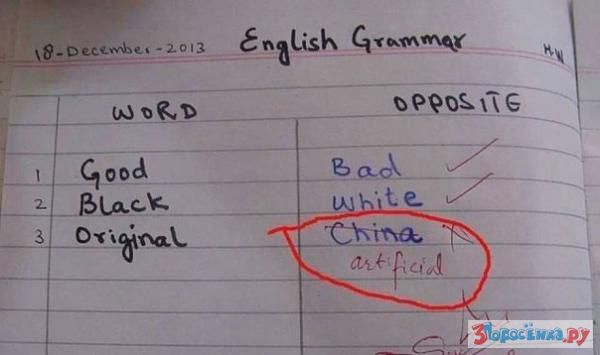 18-December-2013 English Grammar H.W
WORD OPPOSITE
1 Good Bad
2 Black White
3 Original China
artificial
3Поросёнка.ру